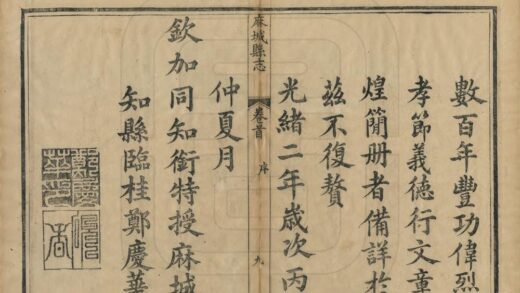 數百年豐功偉烈
孝節義德行文章
煌簡册者備詳於
茲不復贅
光緒二年歲次丙
麻城縣志
卷首
序
九
仲夏月
欽加同知銜特授麻城
知縣臨桂鄭慶華